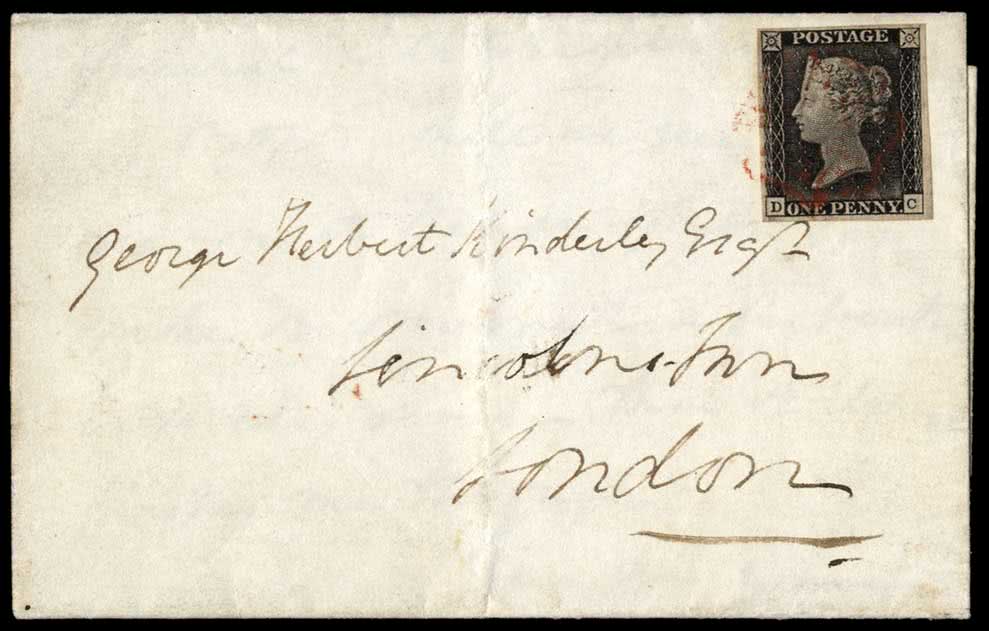 POSTAGE
D ONE PENNY. C
George Herbert Kinderley Esqr
Lincolns Inn
London